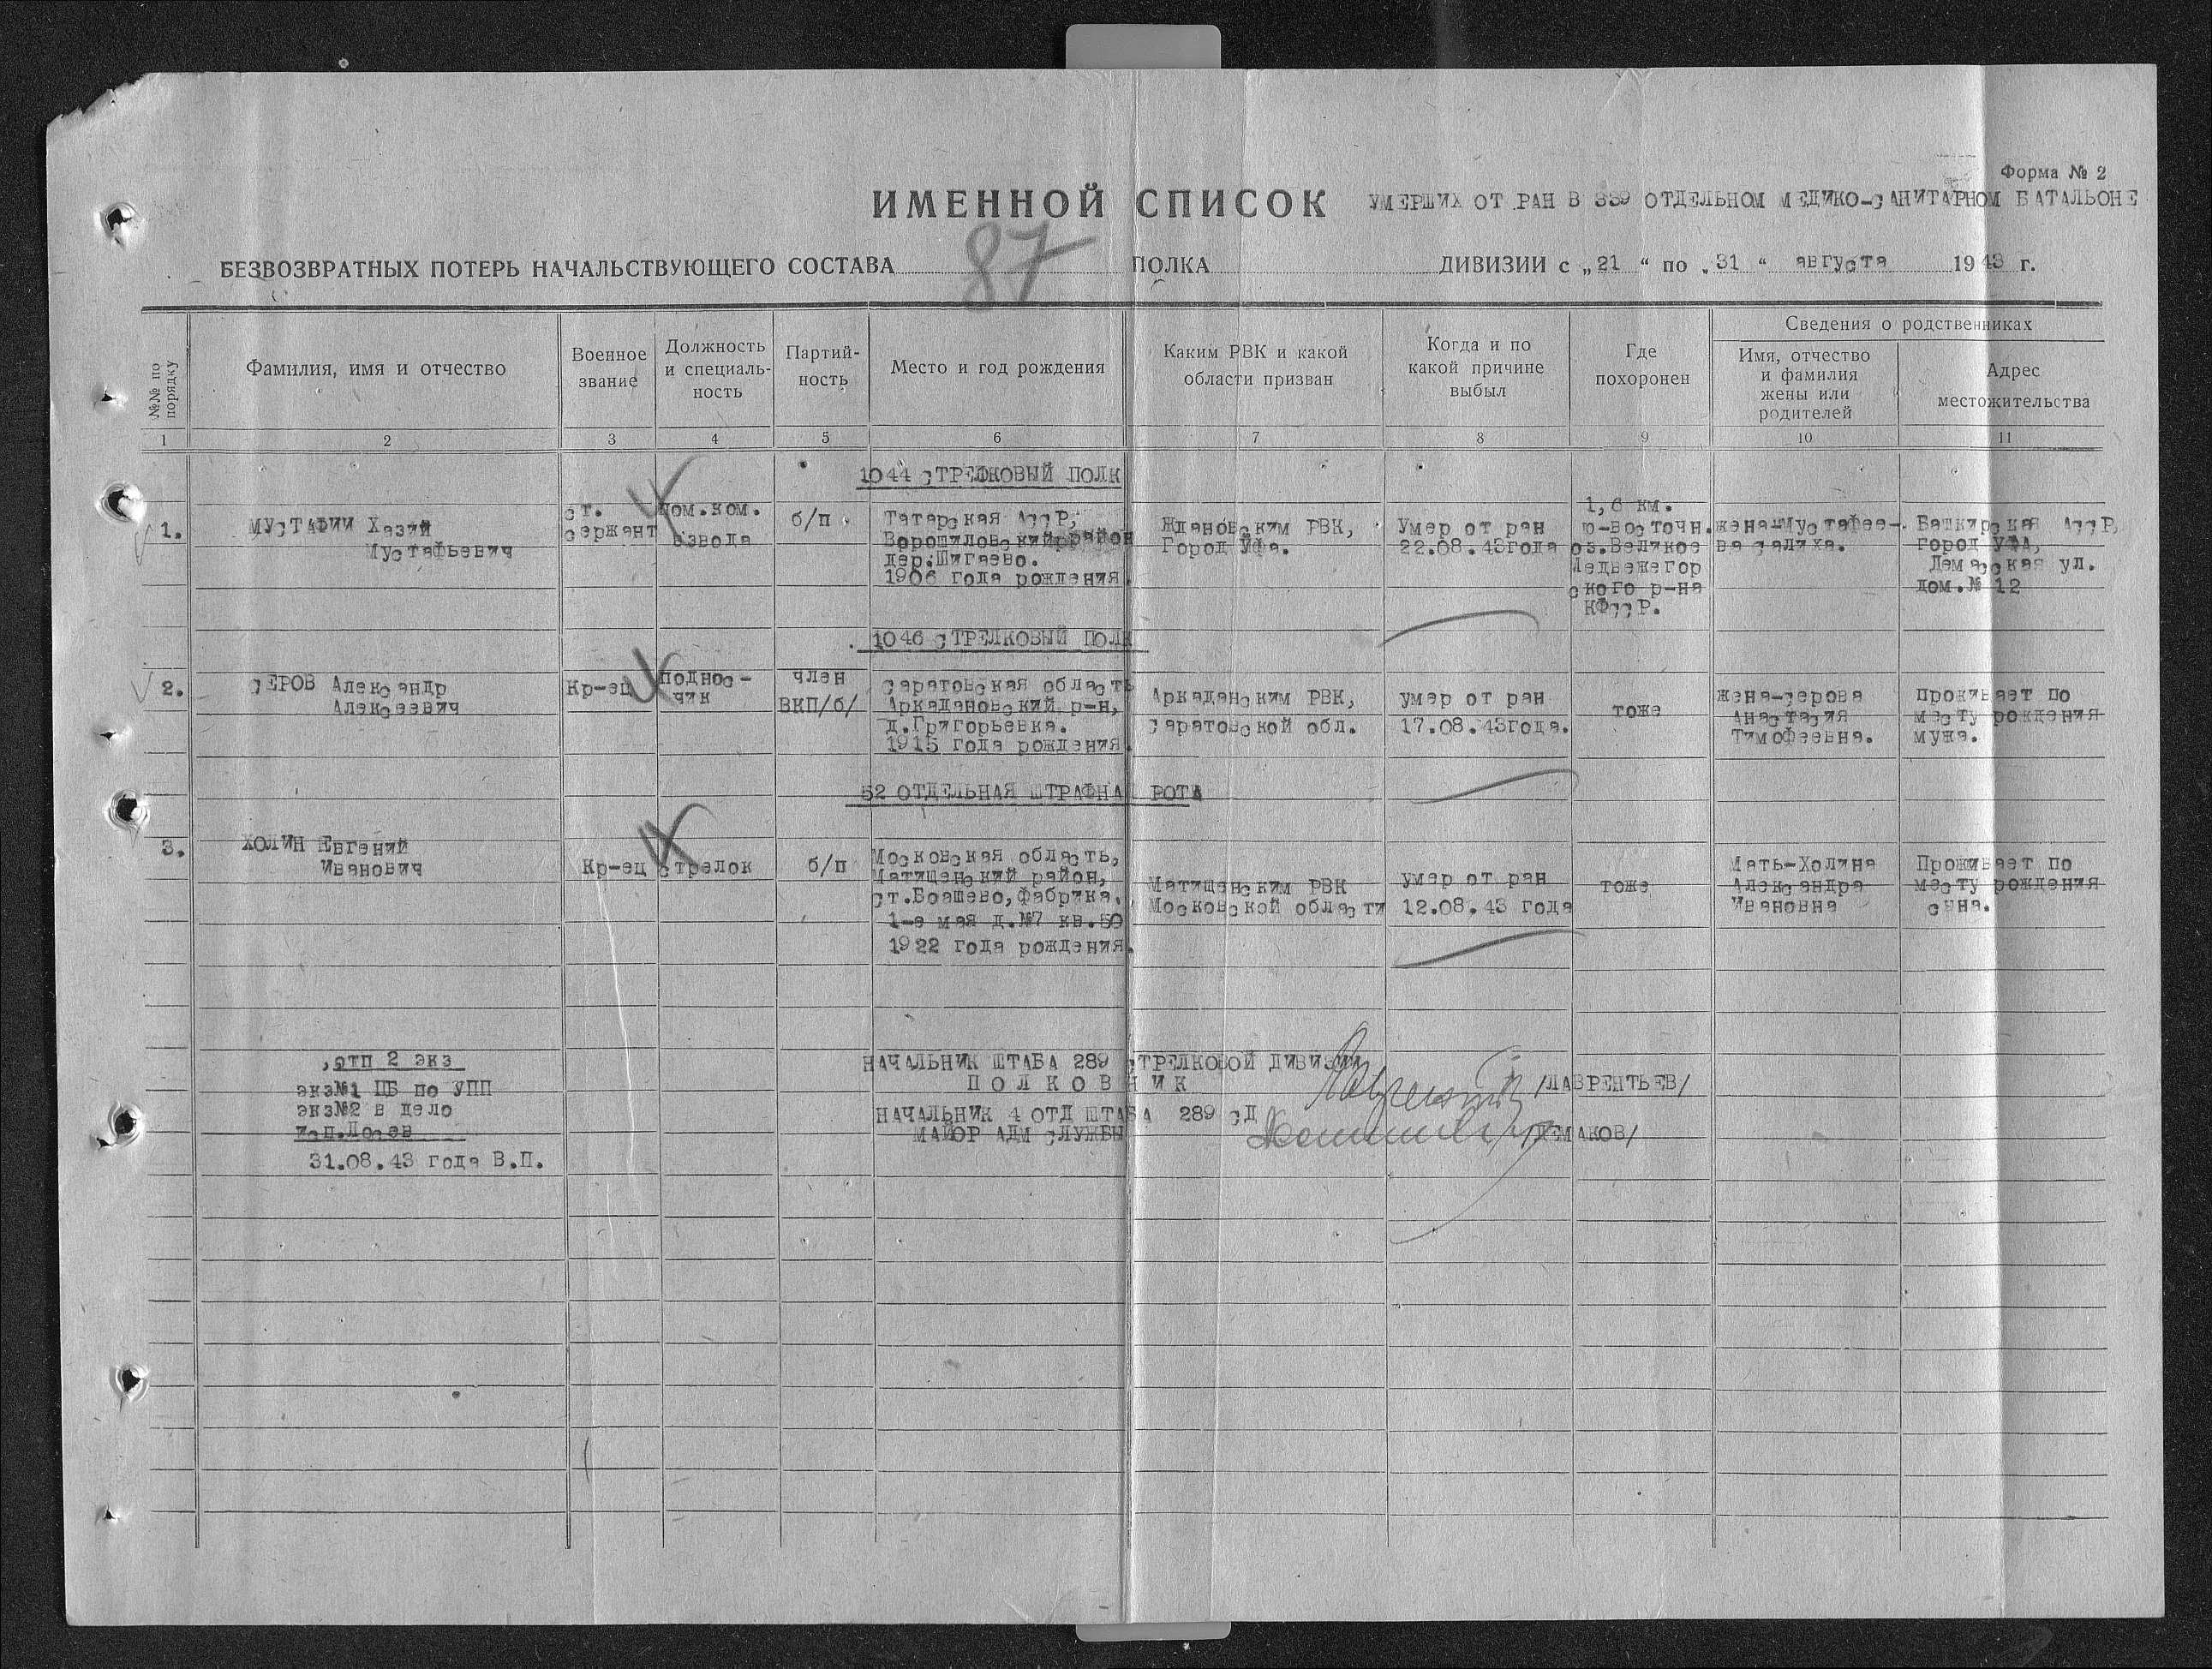 Форма № 2
ИМЕННОЙ СПИСОК УМЕРШИХ ОТ РАН В 339 ОТДЕЛЬНОМ МЕДИКО-САНИТАРНОМ БАТАЛЬОНЕ
87
БЕЗВОЗВРАТНЫХ ПОТЕРЬ НАЧАЛЬСТВУЮЩЕГО СОСТАВА ПОЛКА ДИВИЗИИ с „21“ по „31“ августа 1943 г.
№№ по порядку
Фамилия, имя и отчество
Военное звание
Должность и специаль-ность
Партий-ность
Место и год рождения
Каким РВК и какой области призван
Когда и по какой причине выбыл
Где похоронен
Сведения о родственниках
Имя, отчество и фамилия жены или родителей
Адрес местожительства
1 2 3 4 5 6 7 8 9 10 11
1044 СТРЕЛКОВЫЙ ПОЛК
1.
МУСТАФИИ Хазий
Мустафьевич
ст.
сержант
пом.ком.
взвода
б/п
Татарская АССР,
Ворошиловский район
дер.Шигаево.
1906 года рождения.
Ждановским РВК,
Город Уфа.
Умер от ран
22.08.43года
1,6 км.
ю-восточн.
оз.Великое
Медвежегор
ского р-на
КФССР.
жена-Мустафее-
ва Салиха.
Башкирская АССР,
город УФА,
Демская ул.
дом.№ 12
1046 СТРЕЛКОВЫЙ ПОЛК
2.
СЕРОВ Александр
Алексеевич
Кр-ец
поднос-
чик
член
ВКП/б/
Саратовская область
Аркадановский р-н,
д.Григорьевка.
1915 года рождения.
Аркаданским РВК,
Саратовской обл.
умер от ран
17.08.43года.
тоже
жена-Серова
Анастасия
Тимофеевна.
Проживает по
месту рождения
мужа.
52 ОТДЕЛЬНАЯ ШТРАФНАЯ РОТА
3.
ХОЛИН Евгений
Иванович
Кр-ец
стрелок
б/п
Московская область,
Матищенский район,
ст.Боашево,фабрика.
1-е мая д.№7 кв.50
1922 года рождения.
Матищенским РВК
Московской области
умер от ран
12.08.43 года
тоже
Мать-Холина
Александра
Ивановна
Проживает по
месту рождения
сына.
отп 2 экз
экз№1 ЦБ по УПП
экз№2 в дело
исп.Лосев
31.08.43 года В.П.
НАЧАЛЬНИК ШТАБА 289 СТРЕЛКОВОЙ ДИВИЗИИ
ПОЛКОВНИК /ЛАВРЕНТЬЕВ/
НАЧАЛЬНИК 4 ОТД ШТАБА 289 СД
МАЙОР АДМ СЛУЖБЫ /ДЕМАКОВ/